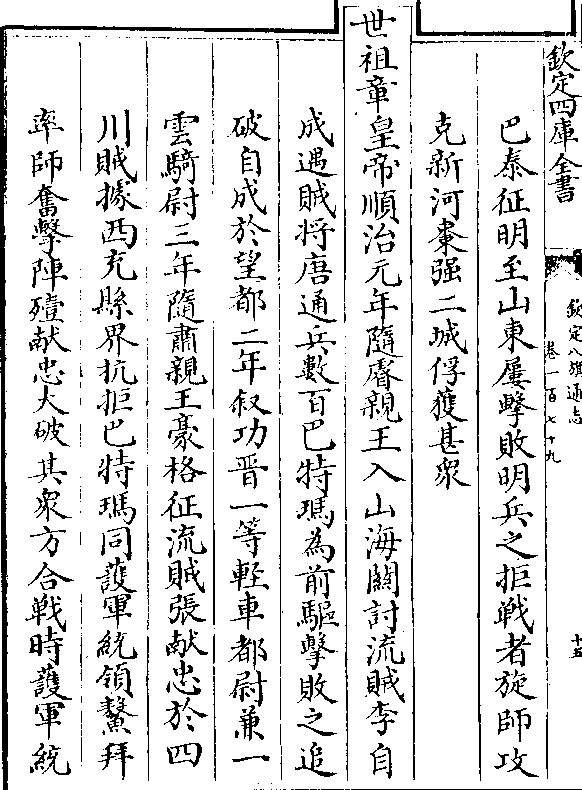 欽定四庫全書
欽定八旗通志
卷一百七十九
十五
巴泰征明至山東屢擊敗明兵之拒戰者旋師攻
克新河棗强二城俘獲甚衆
世祖章皇帝順治元年隨睿親王入山海關討流賊李自
成遇賊将唐通兵數百巴特瑪為前驅擊敗之追
破自成於望都二年叙功晋一等輕車都尉兼一
雲騎尉三年隨肅親王豪格征流賊張献忠於四
川賊據西充縣界抗拒巴特瑪同護軍統領鰲拜
率師奮擊陣殪献忠大破其衆方合戦時護軍統